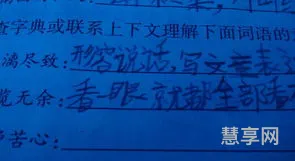 查字典或联系上下文理解下面词语的
漓尽致:形容说话,写文章表
览无余:看一眼就都全部看
苦心:
慧享网